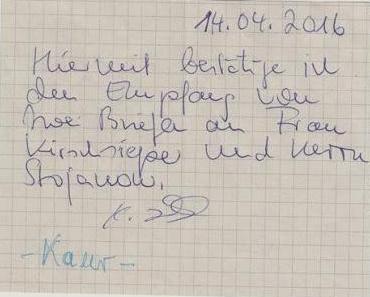 14.04.2016
Hiermit bestätige ich
den Empfang von
zwei Briefen an Frau
und Herrn
Stojanow.
K.
-Kaur-